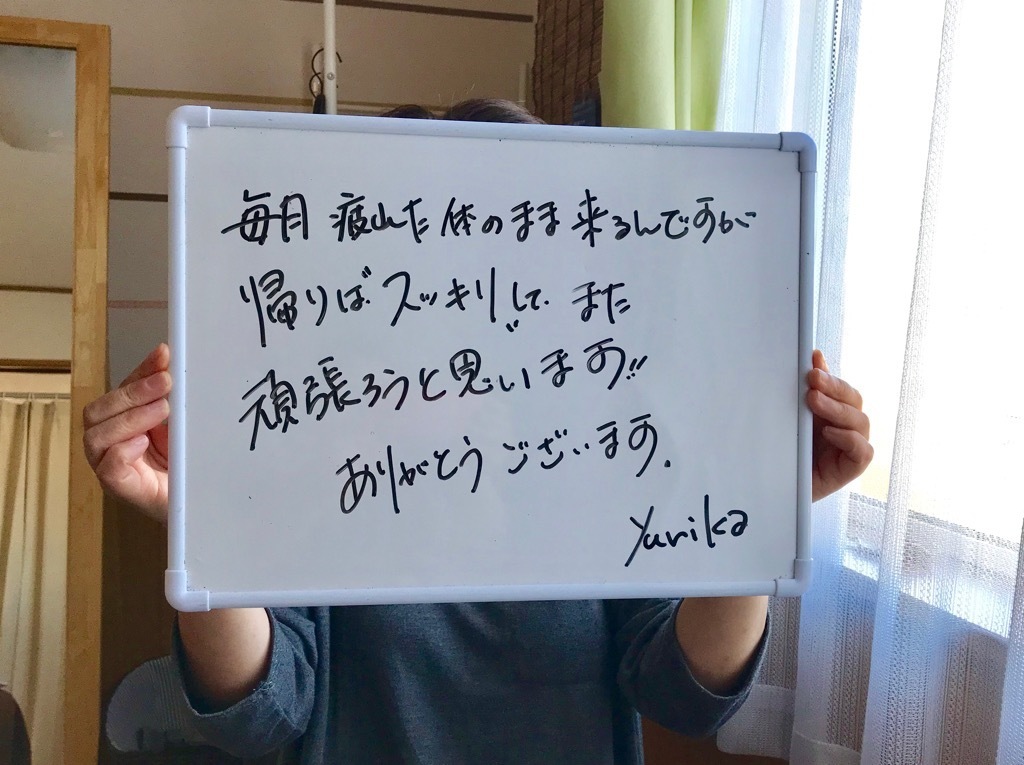 毎月 疲れた体のまま来るんですが
帰りばスッキリして、また
頑張ろうと思います!!
ありがとうございます.
Yurika